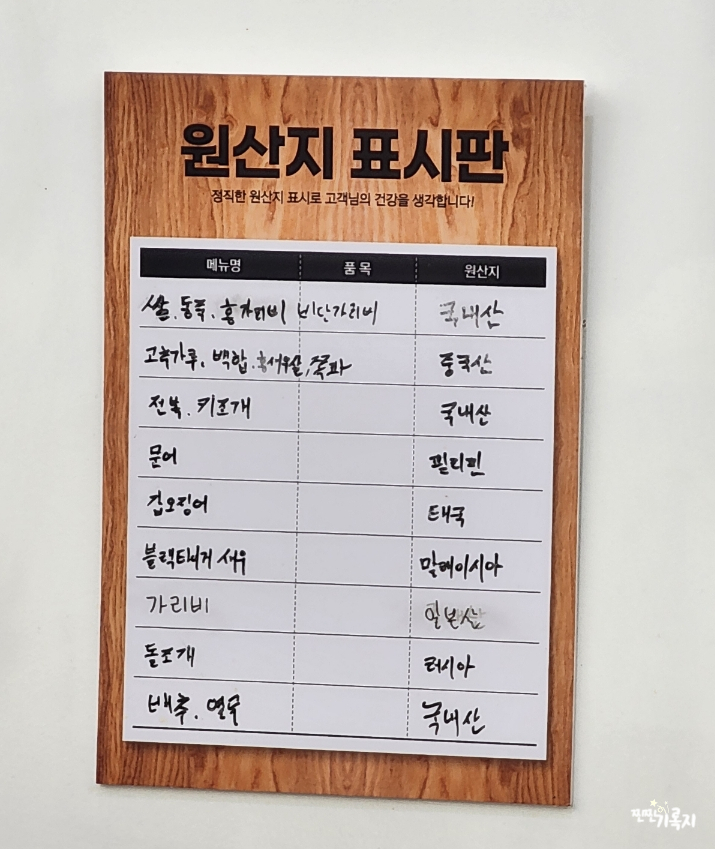 원산지 표시판
정직한 원산지 표시로 고객님의 건강을 생각합니다!
메뉴명 품 목 원산지
쌀, 동죽, 홍가리비 비단가리비 국내산
고춧가루, 백합, 홍새우살, 쪽파 중국산
전복, 키조개 국내산
문어 필리핀
갑오징어 태국
블랙타이거 새우 말레이시아
가리비 일본산
돌조개 러시아
배추, 열무 국내산
기록지